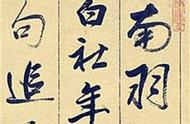 南羽
白社年
句追